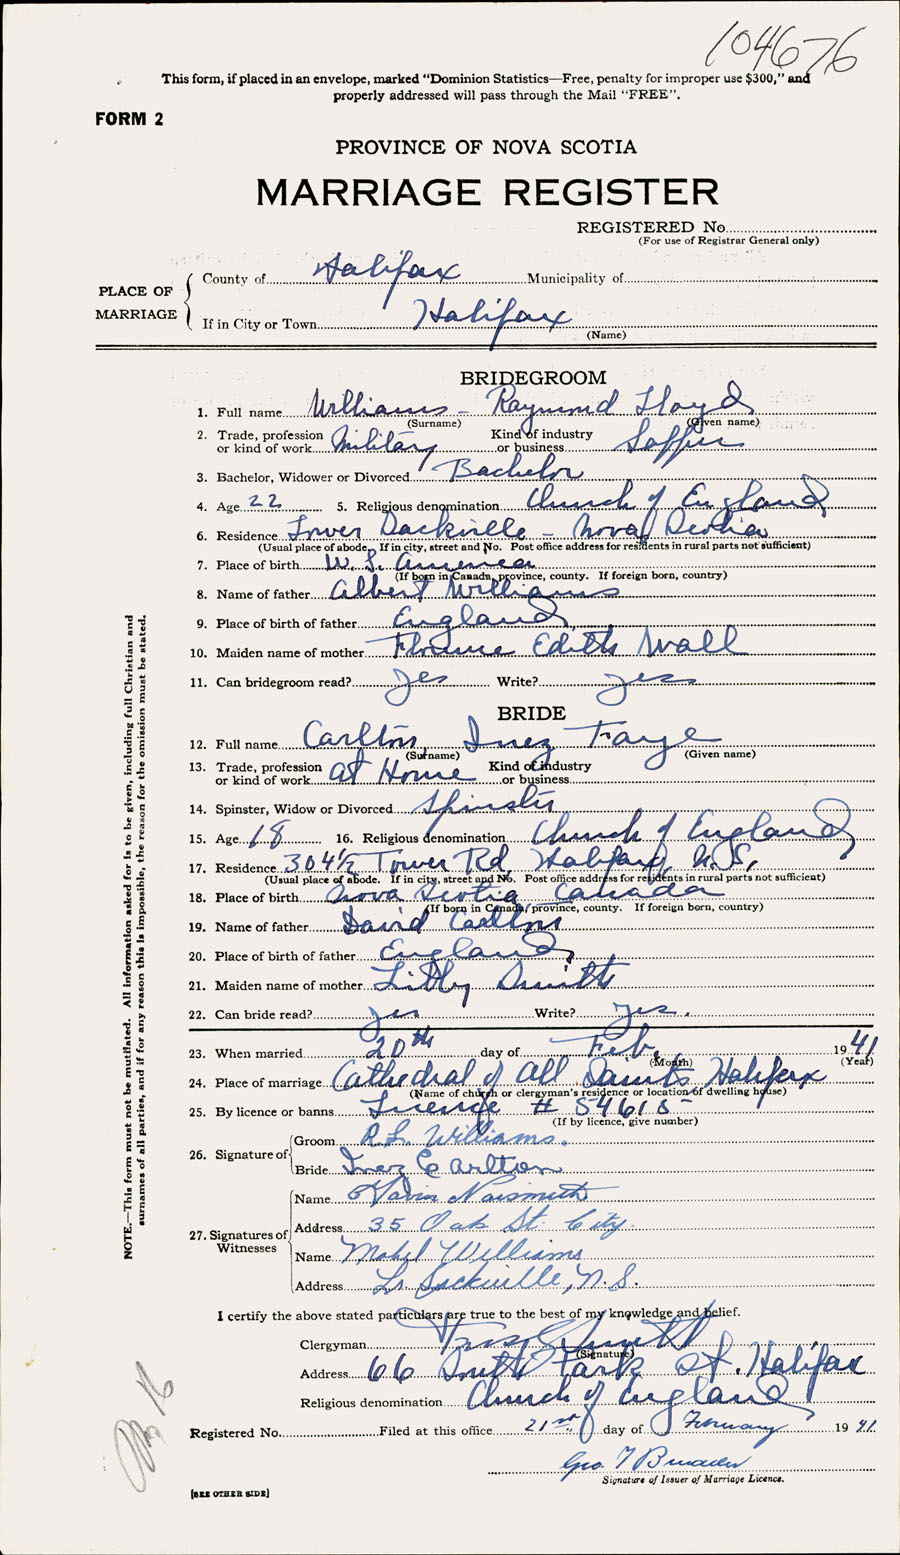 104676
This form, if placed in an envelope, marked "Dominion Statistics—Free, penalty for improper use $300," and
properly addressed will pass through the Mail "FREE".
FORM 2
PROVINCE OF NOVA SCOTIA
MARRIAGE REGISTER
REGISTERED No.
(For use of Registrar General only)
PLACE OF MARRIAGE
County of Halifax Municipality of
If in City or Town Halifax
(Name)
BRIDEGROOM
1. Full name Williams - Raymond Lloyd
(Surname) (Given name)
2. Trade, profession or kind of work Military Kind of industry or business Sapper
3. Bachelor, Widower or Divorced Bachelor
4. Age 22 5. Religious denomination Church of England
6. Residence Lower Sackville - Nova Scotia
(Usual place of abode. If in city, street and No. Post office address for residents in rural parts not sufficient)
7. Place of birth U.S. America
(If born in Canada, province, county. If foreign born, country)
8. Name of father Albert Williams
9. Place of birth of father England
10. Maiden name of mother Florence Edith
11. Can bridegroom read? yes Write? yes
BRIDE
12. Full name Carlton, Inez Faye
(Surname) (Given name)
13. Trade, profession or kind of work At Home Kind of industry or business
14. Spinster, Widow or Divorced Spinster
15. Age 18 16. Religious denomination Church of England
17. Residence 304½ Tower Rd, Halifax, N.S.
(Usual place of abode. If in city, street and No. Post office address for residents in rural parts not sufficient)
18. Place of birth Nova Scotia Canada
(If born in Canada, province, county. If foreign born, country)
19. Name of father David Carlton
20. Place of birth of father England
21. Maiden name of mother Smith
22. Can bride read? yes Write? yes.
23. When married 20th day of Feb. 1941
(Month) (Year)
24. Place of marriage Cathedral of All Saints Halifax
(Name of church or clergyman's residence or location of dwelling house)
25. By licence or banns License # 54615
(If by licence, give number)
26. Signature of
Groom R.L. Williams.
Bride Inez Carlton
27. Signatures of Witnesses
Name Naismith
Address 35 Oak St. City.
Name Mabel Williams
Address Lr Sackville, N.S.
I certify the above stated particulars are true to the best of my knowledge and belief.
Clergyman
(Signature)
Address 66 South Park St. Halifax
Religious denomination Church of England
Registered No. Filed at this office 21st day of February 1941.
Geo.
Signature of Issuer of Marriage Licence.
[SEE OTHER SIDE]
NOTE.—This form must not be mutilated. All information asked for is to be given, including full Christian and
surnames of all parties, and if for any reason this is impossible, the reason for the omission must be stated.